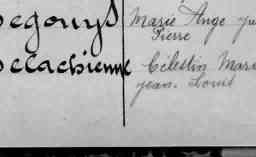 Degouys Marie Ange
Pierre
Delachienne Célestin Mari
Jean-Louis